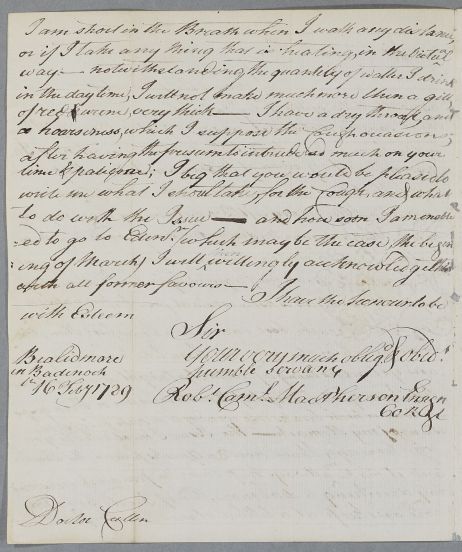 I am short in the Breath when I walk any distance
or if I take any thing that is heating, in the Victual
way — notwithstanding the quantity of water I drink
in the day time, I will not make much more than a gill
of red urine, very thick — I have a dry throat, and
a hoarsness, which I suppose the Cough ocasions
after having thus presum'd to intrude so much on your
time & patience; I beg that you would be pleas'd to
write me what I should take, for the Cough, and what
to do with the Issue — and how soon I am enable
ed to go to Edenr. (which may be the case, the begen
:ing of March) I will willingly acknowledge this
with all former favours — I have the Honour to be
with Esteem
Sir
Your very much oblig'd & obedt.
humble servant
Bealidmore
in Badenoch
16 Feby 1789
Robt. Caml. Macpherson Ensign
Doctor Cullen